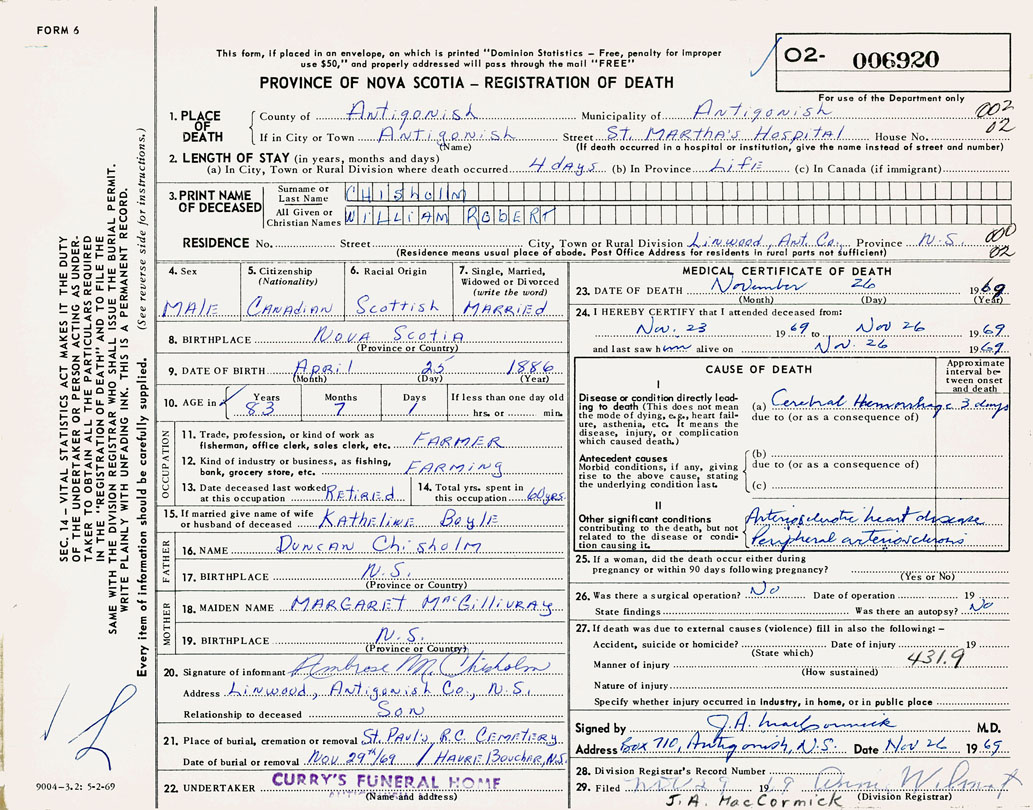 FORM 6
This form, if placed in an envelope, on which is printed "Dominion Statistics – Free, penalty for improper
use $50," and properly addressed will pass through the mail "FREE"
PROVINCE OF NOVA SCOTIA – REGISTRATION OF DEATH
O2- 006920
For use of the Department only
002
02
1. PLACE OF DEATH
County of Antigonish Municipality of Antigonish
If in City or Town Antigonish Street St. Martha's Hospital House No.
(Name) (If death occurred in a hospital or institution, give the name instead of street and number)
2. LENGTH OF STAY (in years, months and days)
(a) In City, Town or Rural Division where death occurred 4 days (b) In Province Life (c) In Canada (if immigrant)
3. PRINT NAME OF DECEASED
Surname or Last Name CHISHOLM
All Given or Christian Names WILLIAM ROBERT
RESIDENCE No. Street City, Town or Rural Division Linwood, Ant. Co. Province N.S.
000
02
(Residence means usual place of abode. Post Office Address for residents in rural parts not sufficient)
4. Sex
MALE
5. Citizenship
(Nationality)
Canadian
6. Racial Origin
Scottish
7. Single, Married,
Widowed or Divorced
(write the word)
MARRIED
8. BIRTHPLACE Nova Scotia
(Province or Country)
9. DATE OF BIRTH April 25 1886
(Month) (Day) (Year)
10. AGE in
Years Months Days If less than one day old
83 7 1 hrs. or min.
OCCUPATION
11. Trade, profession, or kind of work as
fisherman, office clerk, sales clerk, etc. FARMER
12. Kind of industry or business, as fishing,
bank, grocery store, etc. FARMING
13. Date deceased last worked
at this occupation Retired
14. Total yrs. spent in
this occupation 60 yrs.
15. If married give name of wife
or husband of deceased Katheline Boyle
FATHER
16. NAME Duncan Chisholm
17. BIRTHPLACE N.S.
(Province or Country)
MOTHER
18. MAIDEN NAME MARGARET MacGillivray
19. BIRTHPLACE N.S.
(Province or Country)
20. Signature of informant Ambrose M. Chisholm
Address Linwood, Antigonish Co., N.S.
Relationship to deceased Son
21. Place of burial, cremation or removal St. Paul's R.C. Cemetery
Date of burial or removal Nov. 29th/69 / Havre Boucher, N.S.
22. UNDERTAKER CURRY'S FUNERAL HOME
(Name and address)
MEDICAL CERTIFICATE OF DEATH
23. DATE OF DEATH November 26 1969
(Month) (Day) (Year)
24. I HEREBY CERTIFY that I attended deceased from:
Nov. 23 1969 to Nov 26 1969
and last saw him alive on Nov. 26 1969
CAUSE OF DEATH
Approximate
interval be-
tween onset
and death
I
Disease or condition directly lead-
ing to death (This does not mean
the mode of dying, e.g., heart fail-
ure, asthenia, etc. It means the
disease, injury, or complication
which caused death.)
(a) Cerebral Hemorrhage 3 days
due to (or as a consequence of)
Antecedent causes
Morbid conditions, if any, giving
rise to the above cause, stating
the underlying condition last.
(b)
due to (or as a consequence of)
(c)
II
Other significant conditions
contributing to the death, but not
related to the disease or condi-
tion causing it.
Arteriosclerotic heart disease
Peripheral arteriosclerosis
25. If a woman, did the death occur either during
pregnancy or within 90 days following pregnancy?
(Yes or No)
26. Was there a surgical operation? No Date of operation 19
State findings Was there an autopsy? No
27. If death was due to external causes (violence) fill in also the following: –
Accident, suicide or homicide? Date of injury 19
(State which)
Manner of injury 431.9
(How sustained)
Nature of injury
Specify whether injury occurred in Industry, in home, or in public place
Signed by J.A. MacCormick M.D.
Address Box 710, Antigonish, N.S. Date Nov 26 1969
28. Division Registrar's Record Number
29. Filed Nov 29 19
(Division Registrar)
J.A. MacCormick
SEC. 14 – VITAL STATISTICS ACT MAKES IT THE DUTY
OF THE UNDERTAKER OR PERSON ACTING AS UNDER-
TAKER TO OBTAIN ALL THE PARTICULARS REQUIRED
IN THE "REGISTRATION OF DEATH" AND TO FILE THE
SAME WITH THE DIVISION REGISTRAR WHO SHALL ISSUE THE BURIAL PERMIT.
WRITE PLAINLY WITH UNFADING INK. THIS IS A PERMANENT RECORD.
Every item of information should be carefully supplied. (See reverse side for instructions.)
9004-3.2: 5-2-69